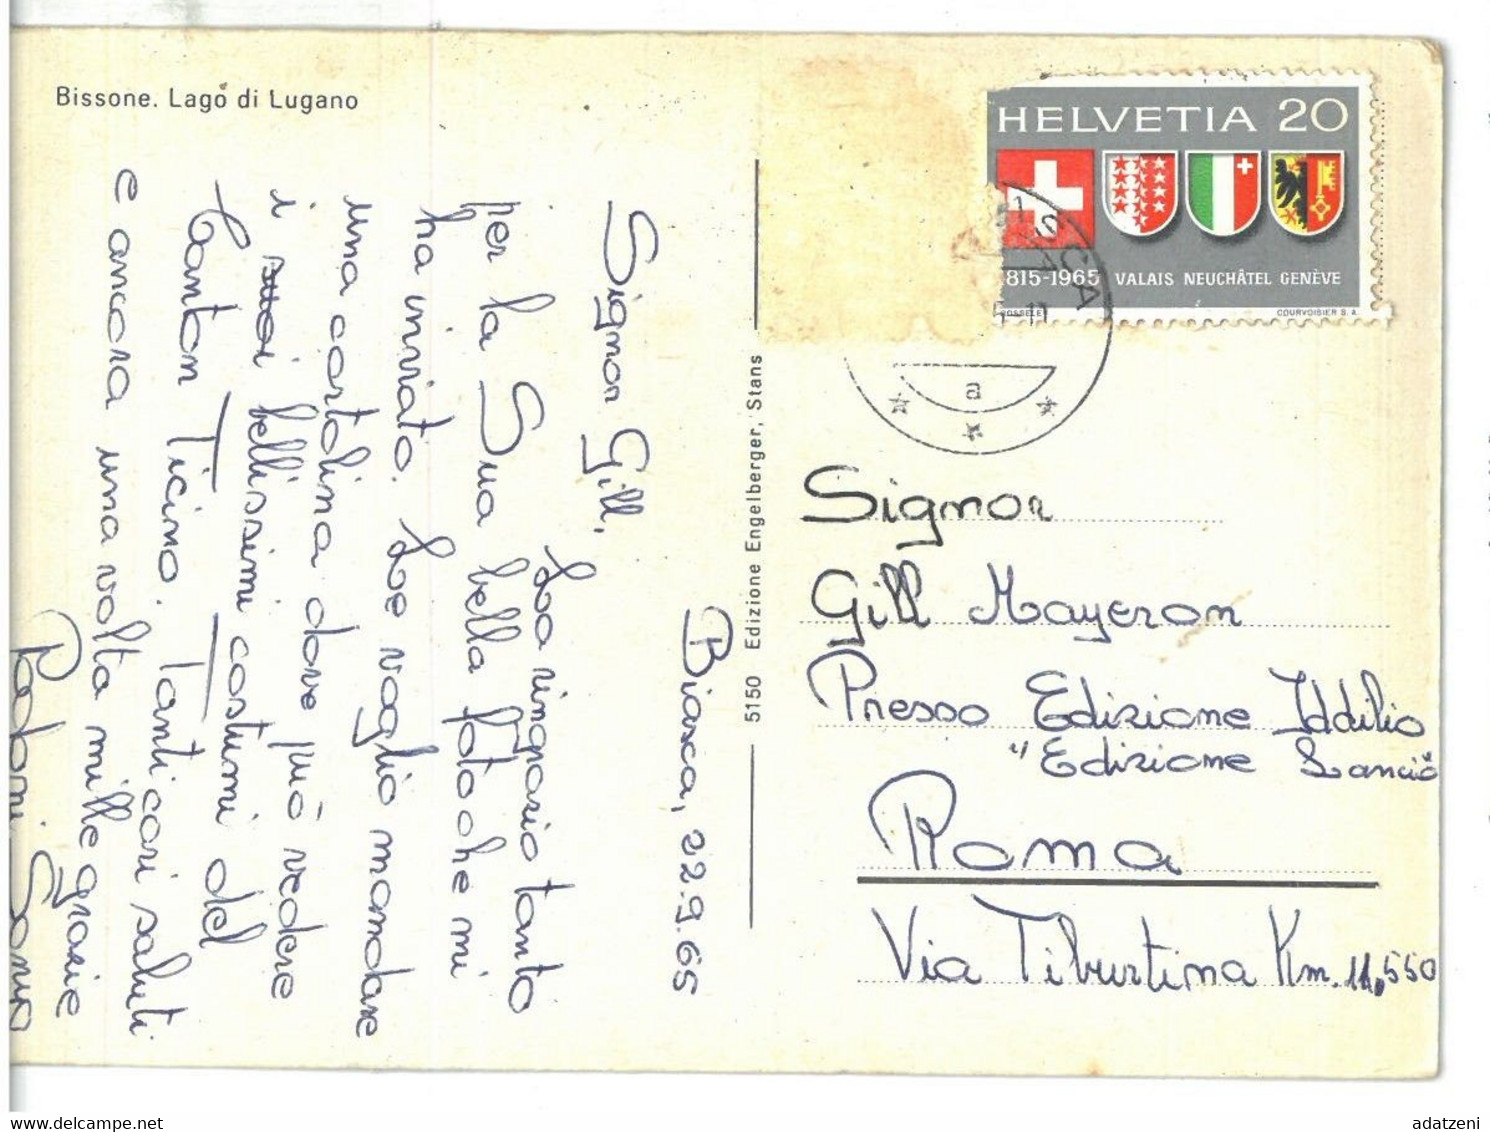 Bissone. Lago di Lugano
Biasca, 22.9.65
Signor Gill,
La ringrazio tanto
per la Sua bella foto che mi
ha inviato. Le voglio mandare
una cartolina dove può vedere
i bellissimi costumi del
Canton Ticino. Tanti cari saluti
e ancora una volta mille grazie
5150 Edizione Engelberger, Stans
HELVETIA 20
1815-1965 VALAIS NEUCHÂTEL GENÈVE
COURVOISIER S.A.
a
Signor
Gill Mayeron
Presso Edizione Iddilio
"Edizione Lancio
Roma
Via Tiburtina Km. 11,550
adatzeni